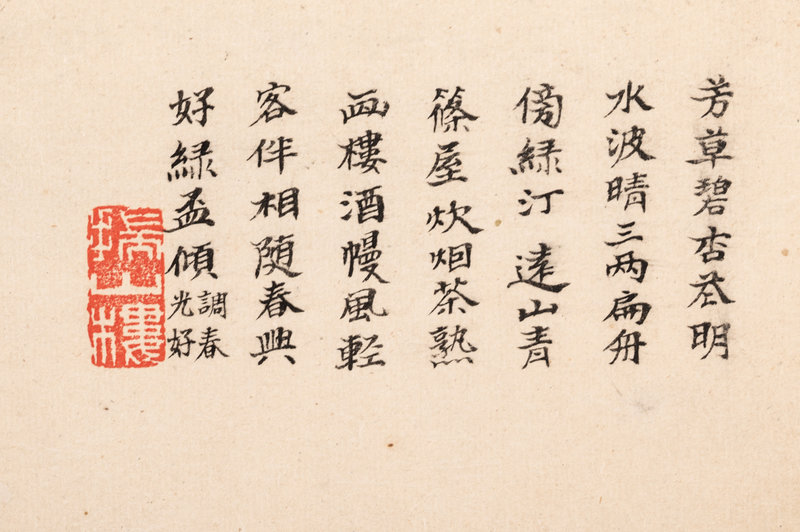 芳草碧杏花明
水波晴三两扁舟
傍緑汀遠山青
篠屋炊烟茶熟
画樓酒幔風軽
客伴相随春興
好緑盃傾調春
光好